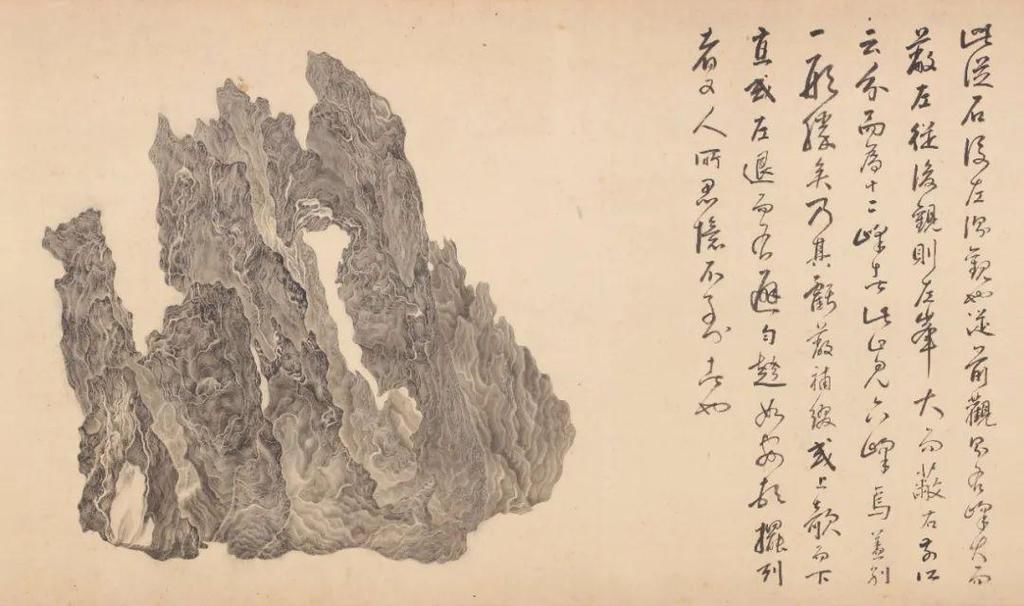 此從石後左隅觀也從前觀右峰大而
蔽左從後觀則左峯大而蔽右前所
云分而為十二峰者此止見六峰焉蓋別
一形勝矣乃其虧蔽補綴或上欹而下
直或左退而右避勾趨如安頓擺列
者又人所思憶不到者也